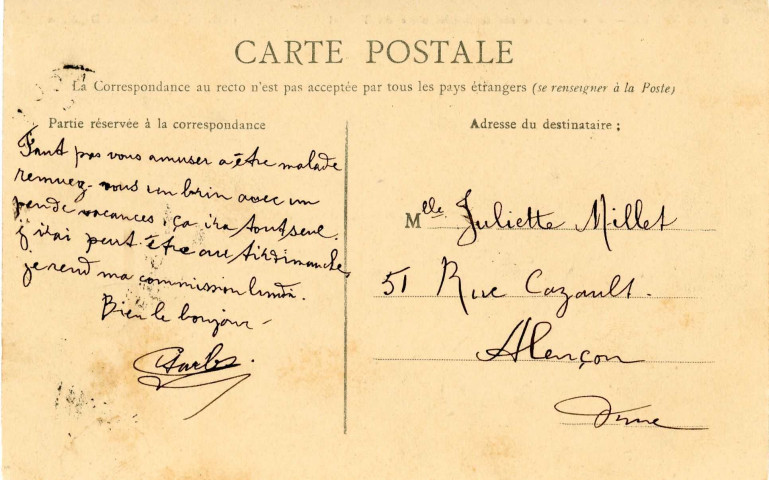 CARTE POSTALE
La Correspondance au recto n'est pas acceptée par tous les pays étrangers (se renseigner à la Poste)
Partie réservée à la correspondance
Faut pas vous amuser a être malade
remuez-vous un brin avec un
peu de vacances, ça ira tout seul.
j'irai peut être au tir dimanche,
je rend ma commission lundi.
Bien le bonjour -
Charles.
Adresse du destinataire :
Melle Juliette Millet
51 Rue Cazault.
Alençon
Orne